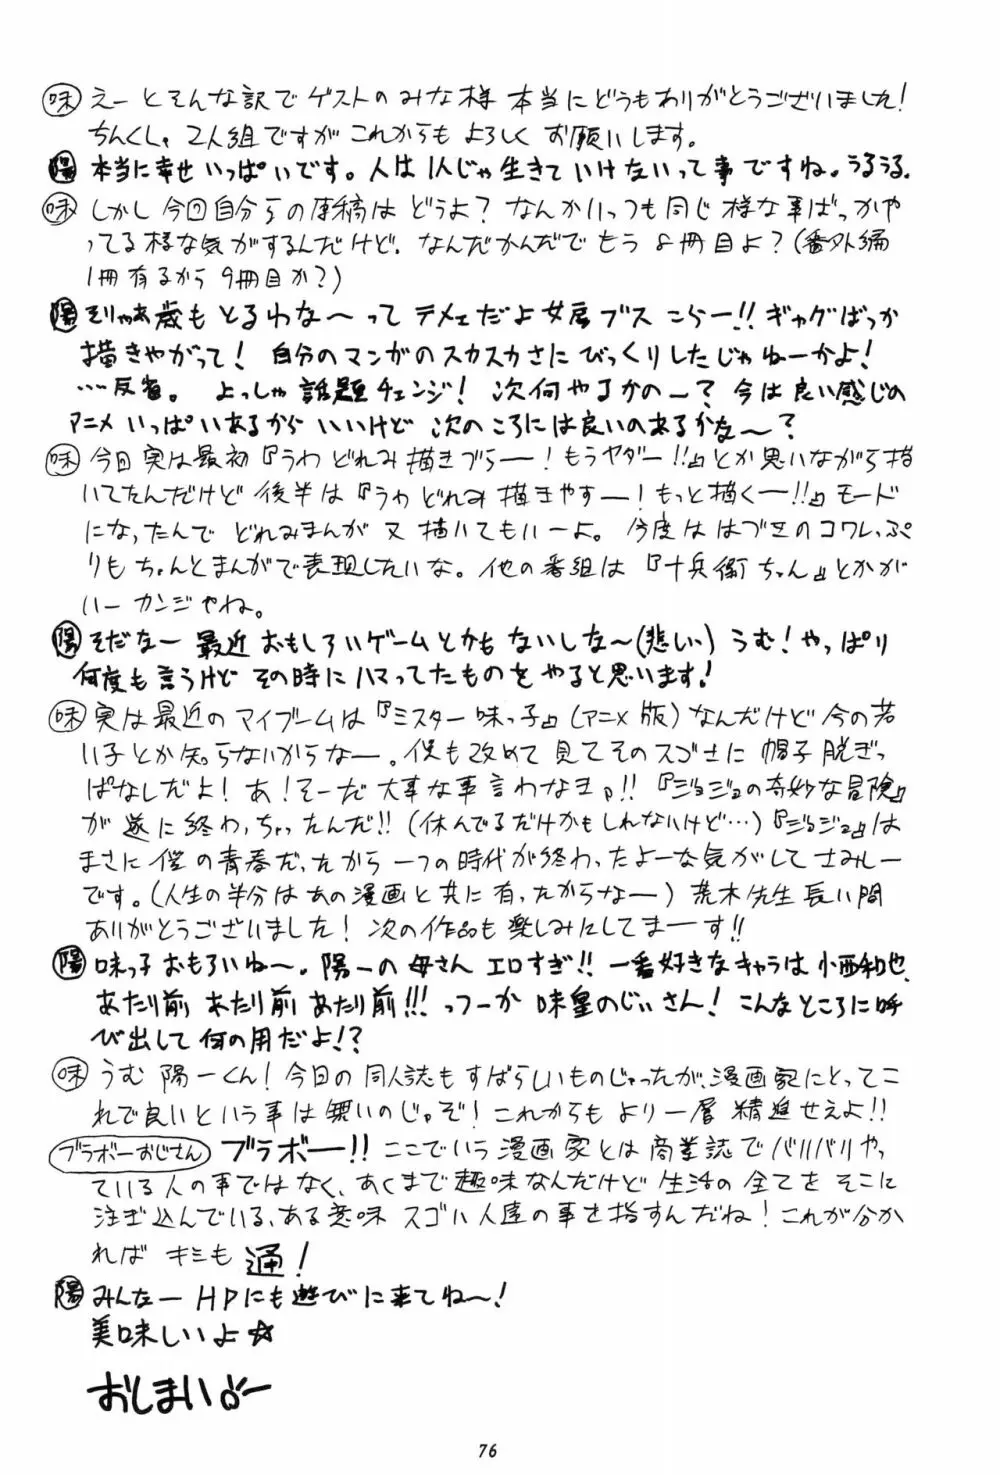 味 えーとそんな訳でゲストのみな様 本当にどうもありがとうございました!
ちんくしゃ2人組ですがこれからもよろしくお願いします。
陽 本当に幸せいっぱいです。人は1人じゃ生きていけないって事ですね。うるうる。
味 しかし今回自分らの原稿はどうよ?なんかいっつも同じ様な事ばっかや
ってる様な気がするんだけど.なんだかんだでもう8冊目よ?(番外編
1冊有るから9冊目か?)
陽 そりゃあ歳もとるわな〜ってテメェだよ女房ブスこらー!!ギャグばっか
描きやがって!自分のマンガのスカスカさにびっくりしたじゃねーかよ!
……反省。よっしゃ話題チェンジ!次何やるかの〜?今は良い感じの
アニメいっぱいあるからいいけど次のころには良いのあるかな〜?
味 今回実は最初『うわどれみ描きづらー!もうヤダー!!』とか思いながら描
いてたんだけど後半は『うわどれみ描きやすー!もっと描くー!!』モード
になったんでどれみまんが又描いてもいーよ。今度ははづきのコワレっぷ
りもちゃんとまんがで表現したいな。他の番組は『十兵衛ちゃん』とかが
いーカンジやね。
陽 そだなー最近おもしろいゲームとかもないしな〜(悲しい)うむ!やっぱり
何度も言うけどその時にハマってたものをやると思います!
味 実は最近のマイブームは『ミスター味っ子』(アニメ版)なんだけど今の若
い子とか知らないからなー。僕も改めて見てそのスゴさに帽子脱ぎっ
ぱなしだよ!あ!そーだ大事な事言わなきゃ!!『ジョジョの奇妙な冒険』
が遂に終わっちゃったんだ!!(休んでるだけかもしれないけど…)『ジョジョ』は
まさに僕の青春だったから一つの時代が終わったよーな気がしてさみしー
です。(人生の半分はあの漫画と共に有ったからなー)荒木先生長い間
ありがとうございました!次の作品も楽しみにしてまーす!!
陽 味っ子おもろいね〜。陽一の母さんエロすぎ!!一番好きなキャラは小西和也
あたり前あたり前あたり前!!!っつーか味皇のじぃさん!こんなところに呼
び出して何の用だよ!?
味 うむ陽一くん!今日の同人誌もすばらしいものじゃったが、漫画家にとってこ
れで良いという事は無いのじゃぞ!これからもより一層精進せえよ!!
ブラボーおじさん ブラボー!!ここでいう漫画家とは商業誌でバリバリやっ
ている人の事ではなく、あくまで趣味なんだけど生活の全てをそこに
注ぎ込んでいる、ある意味スゴい人達の事を指すんだね!これが分か
ればキミも通!
陽 みんなーHPにも遊びに来てね〜!
美味しいよ☆
おしまいっ
76